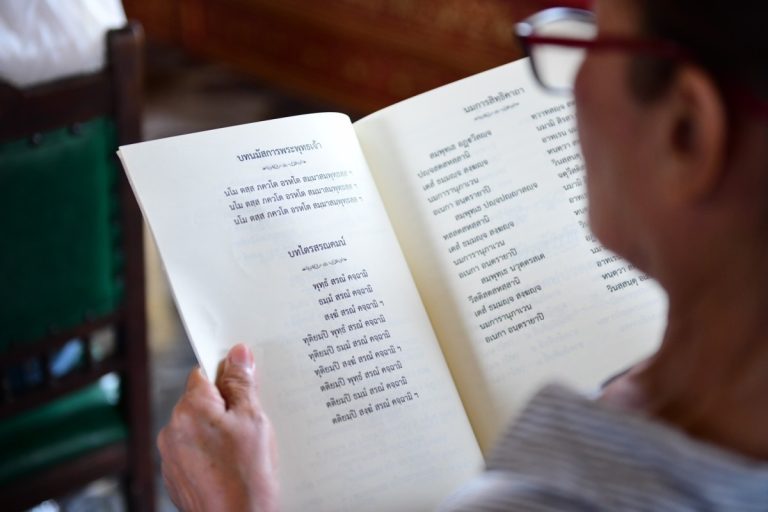 บทนมัสการพระพุทธเจ้า
นโม ตสฺส ภควโต อรหโต สมฺมาสมฺพุทฺธสฺส ฯ
นโม ตสฺส ภควโต อรหโต สมฺมาสมฺพุทฺธสฺส ฯ
นโม ตสฺส ภควโต อรหโต สมฺมาสมฺพุทฺธสฺส ฯ
บทไตรสรณคมน์
พุทฺธํ สรณํ คจฺฉามิ
ธมฺมํ สรณํ คจฺฉามิ
สงฺฆํ สรณํ คจฺฉามิ ฯ
ทุติยมฺปิ พุทฺธํ สรณํ คจฺฉามิ
ทุติยมฺปิ ธมฺมํ สรณํ คจฺฉามิ
ทุติยมฺปิ สงฺฆํ สรณํ คจฺฉามิ ฯ
ตติยมฺปิ พุทฺธํ สรณํ คจฺฉามิ
ตติยมฺปิ ธมฺมํ สรณํ คจฺฉามิ
ตติยมฺปิ สงฺฆํ สรณํ คจฺฉามิ ฯ
นมการสิทธิคาถา
สมฺพุทฺเธ อฏฺฐวีสญฺจ
ปญฺจสตสหสฺสานิ
เตสํ ธมฺมญฺจ สงฺฆญฺจ
นมการานุภาเวน
อเนกา อนฺตรายาปิ
สมฺพุทฺเธ ปญฺจปญฺญาสญฺจ
ทสสตสหสฺสานิ
เตสํ ธมฺมญฺจ สงฺฆญฺจ
นมการานุภาเวน
อเนกา อนฺตรายาปิ
สมฺพุทฺเธ นวุตฺตรสเต
วีสติสตสหสฺสานิ
เตสํ ธมฺมญฺจ สงฺฆญฺจ
นมการานุภาเวน
อเนกา อนฺตรายาปิ